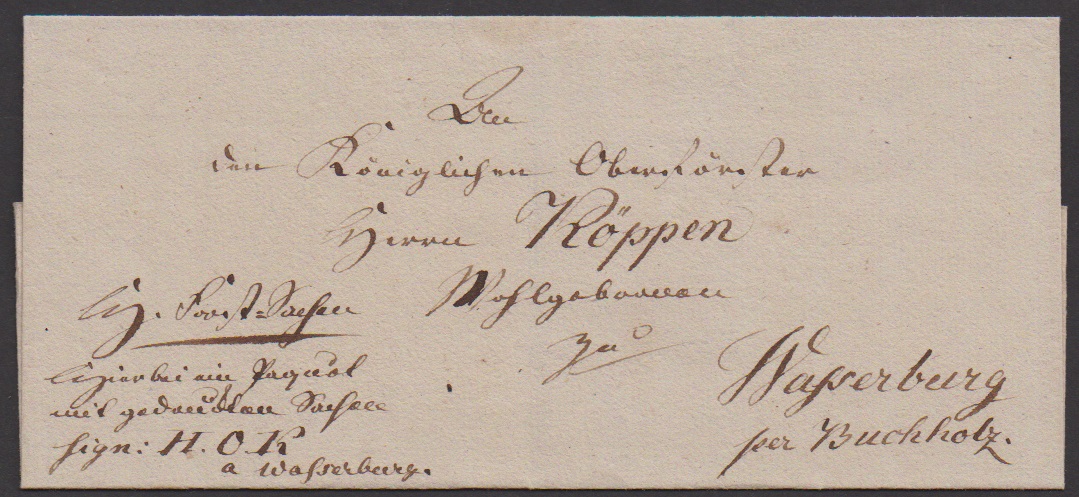 An
den Königlichen Oberförster
Herrn Köppen
Wohlgeboren
zu
Wasserburg
per Buchholz.
H. Forst-Sachen
Hierbei ein Paquet
mit gedruckten Sachen
sign: H. O. K
a Wasserburg.